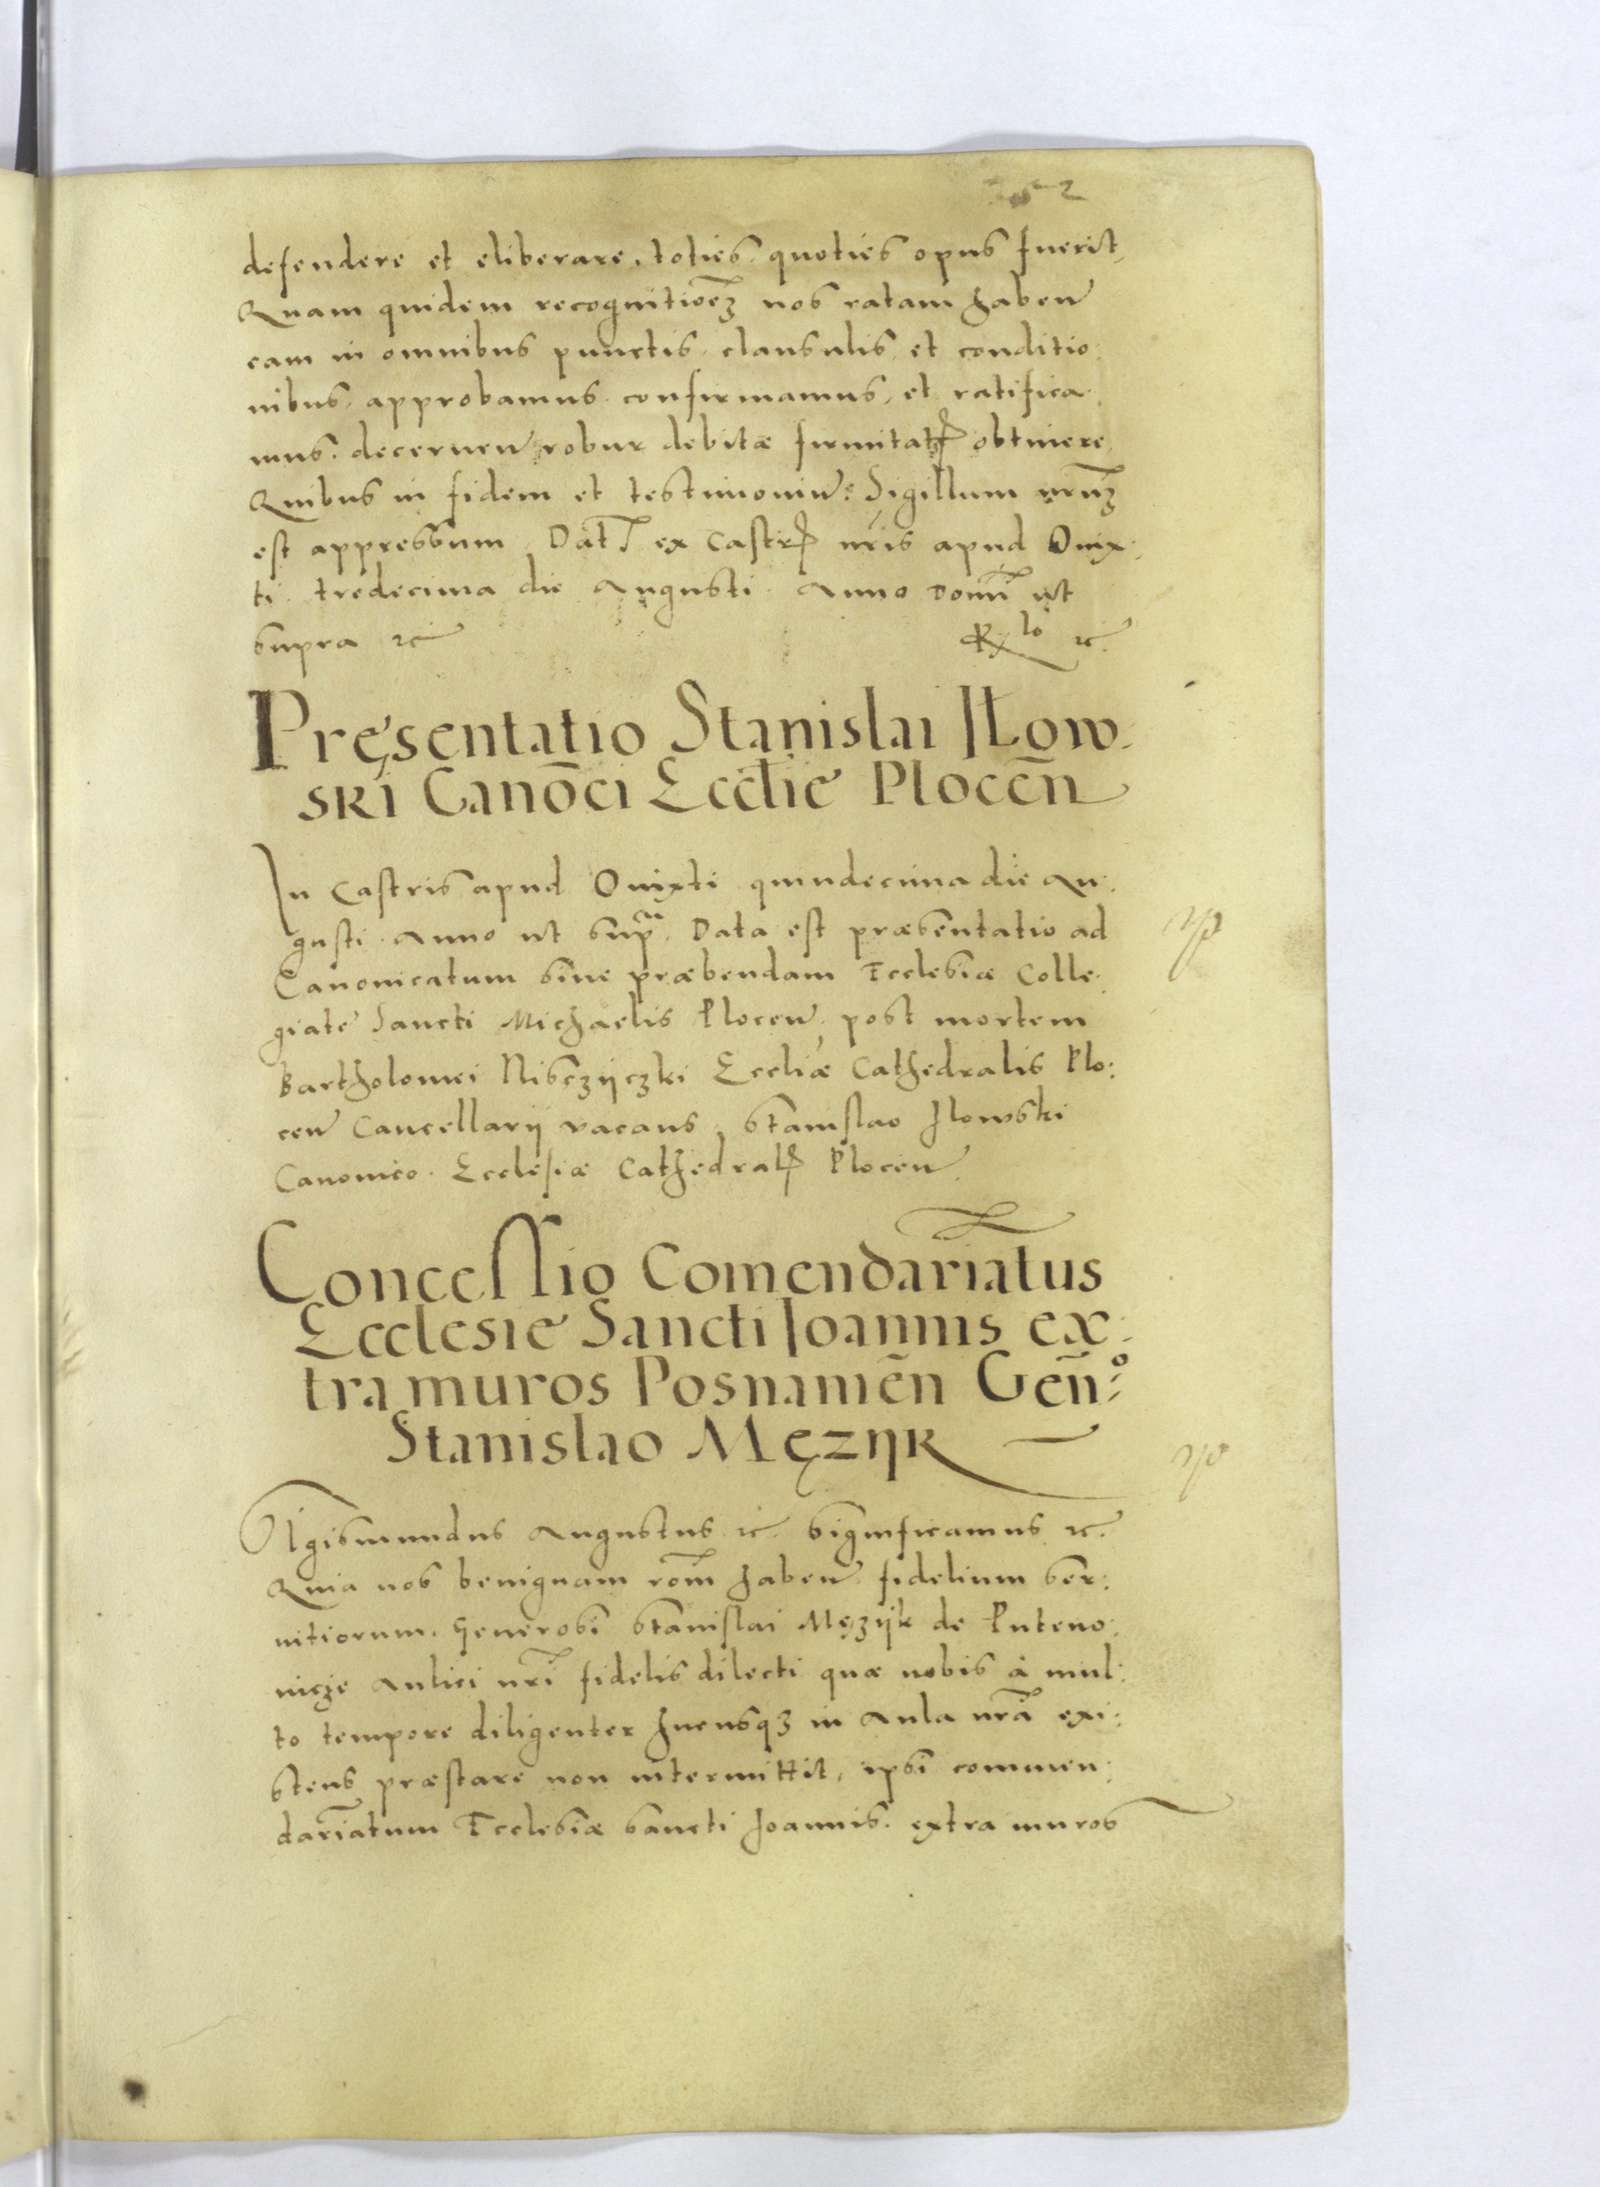 defendere et eliberare, toties quoties opus fuerit,
Quam quidem recognitiōēz nos ratam haben
eam in omnibus punctis, clausulis, et conditio:
nibus, approbamus, confirmamus, et ratifica
mus, decernen robur debitæ firmitatis obtinere.
Quibus in fidem et testimoniū Sigillum nr̄m
est appressum. Dat̄ ex Castris nr̄is apud Ouix:
ti, tredecima die Augusti. Anno Domī ut
supra ꝛc
Pręsentatio Stanislai Iłow:
ski Canōci Eccłie Plocēn
In Castris apud Ouixti quindecima die Au:
gusti. Anno ut supra. Data est præsentatio ad
Canonicatum siue præbendam Ecclesiæ Colle:
giatę Sancti Michaelis Plocen, post mortem
Bartholomei Nisczijczki Eccliæ Cathedralis Plo:
cen Cancellarij vacans, Stanislao Ilowski
Canonico Ecclesiæ Cathedralis Plocen
Concessio Comendariatus
Ecclesię Sancti Ioannis ex:
tra muros Posnaniēn Geñ:º
Stanislao Męzijk
Sigismundus Augustus ꝛc. significamus ꝛc.
Quia nos benignam rōm haben fidelium ser:
uitiorum, Generosi Stanislai Męzijk de Puteno:
uicze Aulici nr̄i fidelis dilecti quæ nobis à mul:
to tempore diligenter hucusqȝ in Aula nr̄a exi:
stens præstare non intermittit, ipsi commen:
dariatum Ecclesiæ Sancti Ioannis extra muros